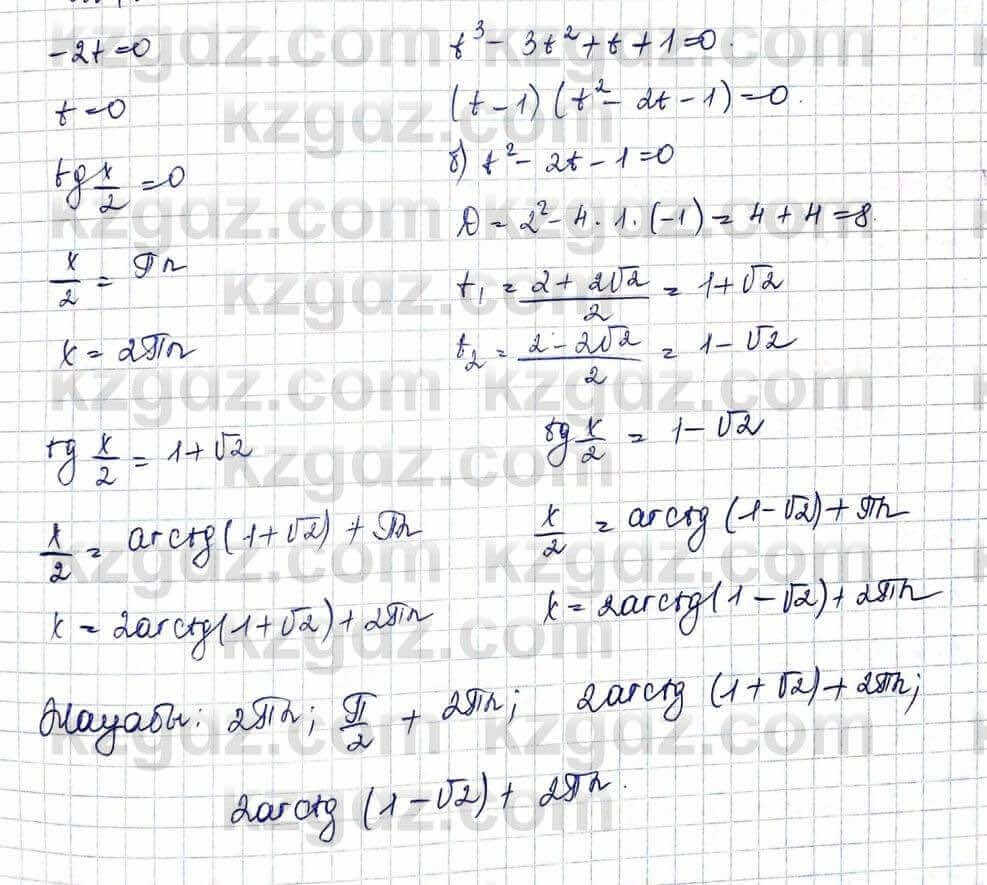 -2t=0
t=0
tg x/2 =0
x/2 = πn
x = 2πn
t³ - 3t² + t + 1=0.
(t-1)(t² - 2t - 1)=0.
б) t² - 2t - 1=0
D = 2² - 4·1·(-1) = 4+4=8.
t₁ = (2+2√2)/2 = 1+√2
t₂ = (2-2√2)/2 = 1-√2
tg x/2 = 1+√2
x/2 = arctg(1+√2)+πn
x = 2arctg(1+√2)+2πn
tg x/2 = 1-√2
x/2 = arctg(1-√2)+πn
x = 2arctg(1-√2)+2πn
Жауабы: 2πn; π/2 + 2πn; 2arctg(1+√2)+2πn;
2arctg(1-√2)+2πn.
kzgdz.com